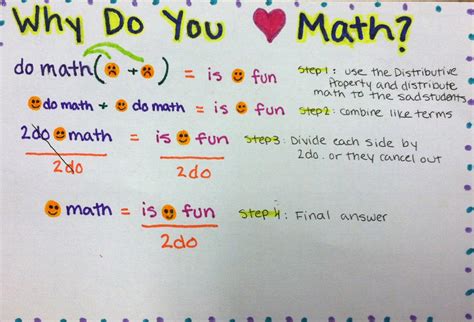 Why Do You ❤ Math?
do math(☹ + ☹) = is ☺ fun
Step 1: use the Distributive
Property and distribute
math to the sad students
☺ do math + ☺ do math = is ☺ fun
Step 2: combine like terms
2do ☺ math = is ☺ fun
2do 2do
Step 3: Divide each side by
2do. or they cancel out
☺ math = is ☺ fun
2do
Step 4: Final answer